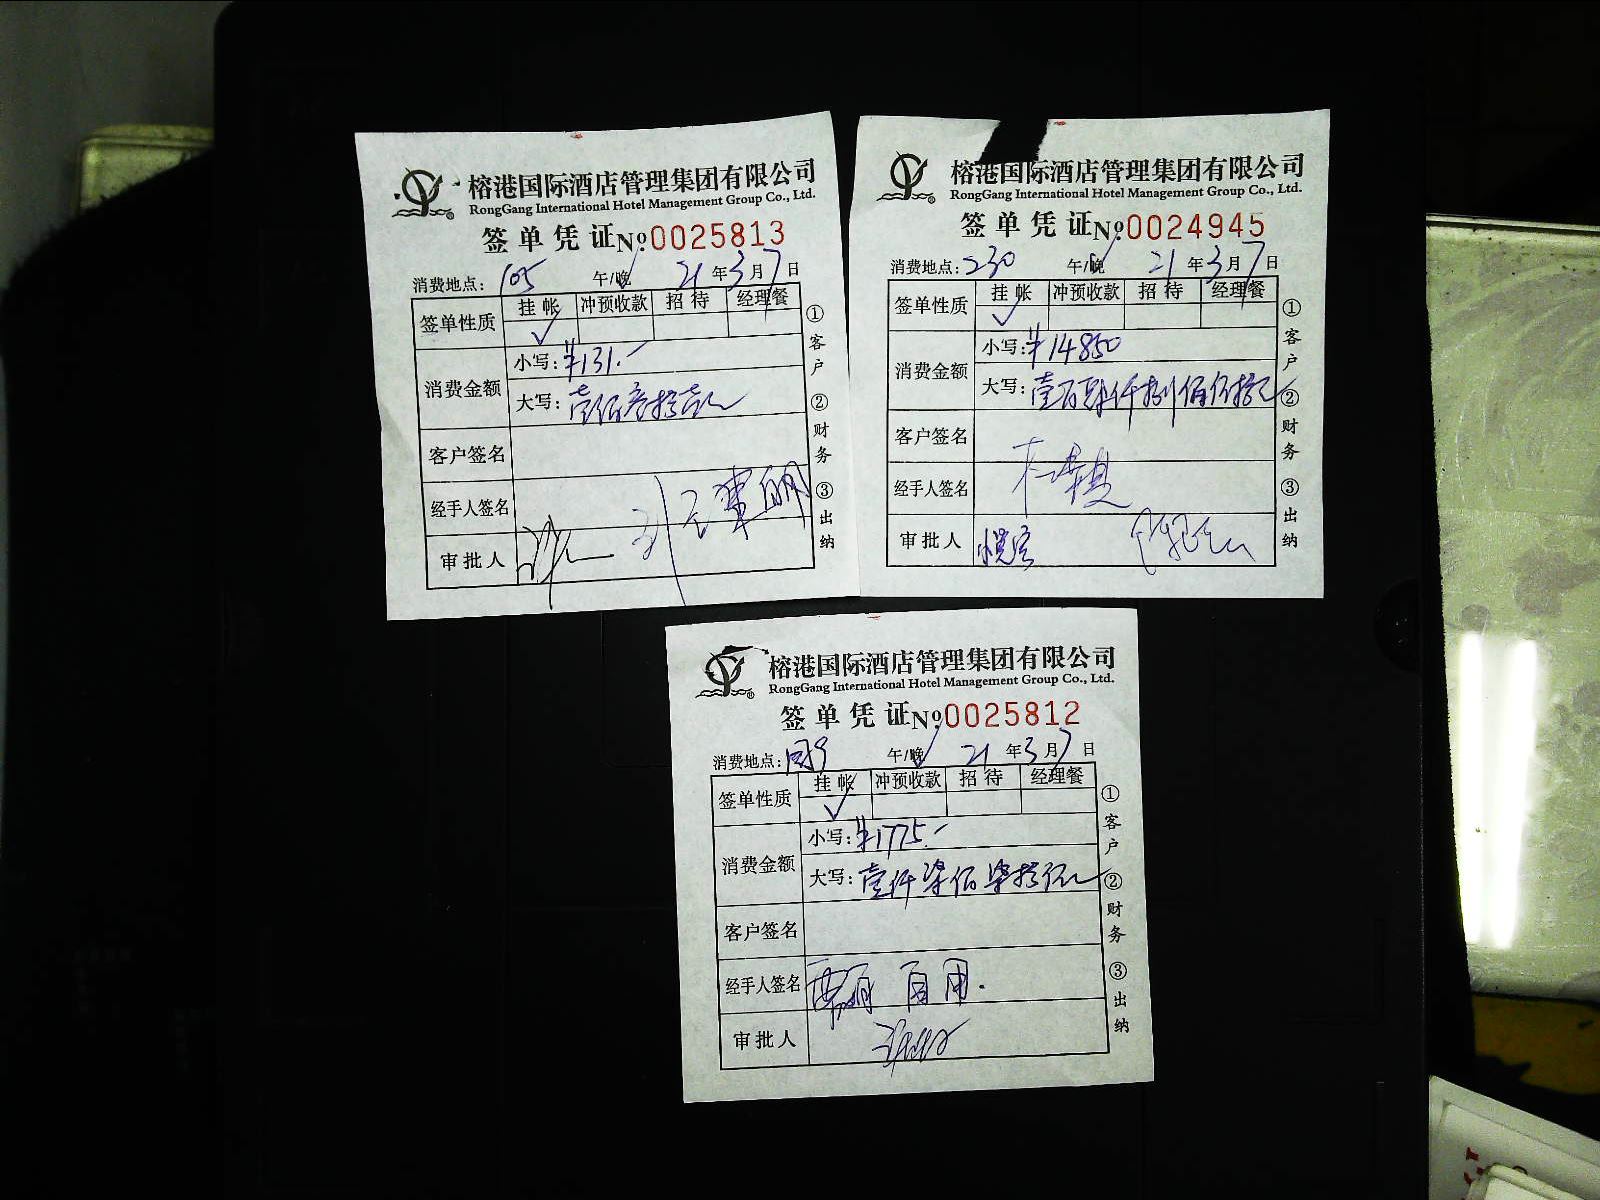 榕港国际酒店管理集团有限公司
RongGang International Hotel Management Group Co., Ltd.
签单凭证 No.0025813
消费地点: 105 午/晚 21年3月7日
签单性质 挂帐 冲预收款 招待 经理餐
✓
消费金额
小写: ¥131.-
大写: 壹佰叁拾壹元
客户签名
经手人签名
审批人
①客户 ②财务 ③出纳
榕港国际酒店管理集团有限公司
RongGang International Hotel Management Group Co., Ltd.
签单凭证 No.0024945
消费地点: 230 午/晚 21年3月7日
签单性质 挂帐 冲预收款 招待 经理餐
✓
消费金额
小写: ¥14850
大写: 仟捌佰伍拾元
客户签名
经手人签名
审批人
①客户 ②财务 ③出纳
榕港国际酒店管理集团有限公司
RongGang International Hotel Management Group Co., Ltd.
签单凭证 No.0025812
消费地点: 午/晚 21年3月7日
签单性质 挂帐 冲预收款 招待 经理餐
✓
消费金额
小写: ¥1775.-
大写: 壹仟柒佰柒拾伍元
客户签名
经手人签名 自用.
审批人
①客户 ②财务 ③出纳